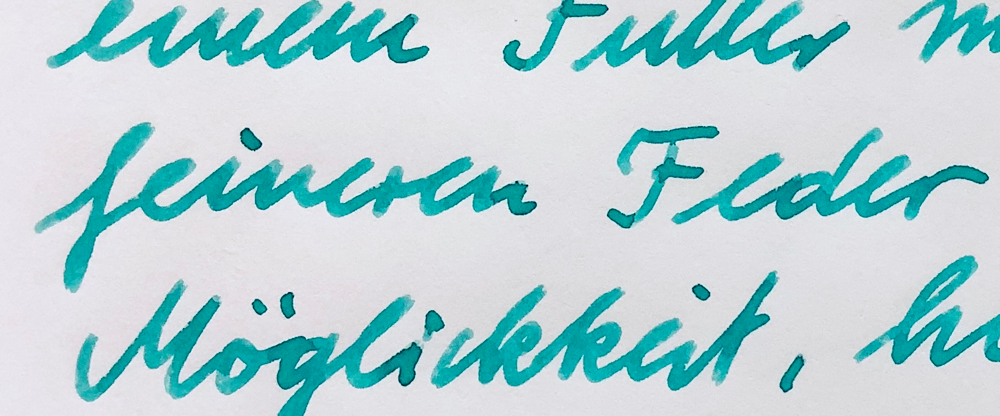 einem Füller m
feineren Feder
Möglichkeit,